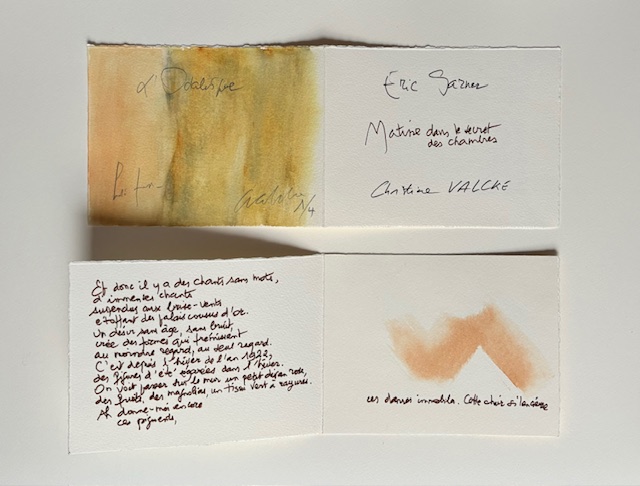 L'Odalisque
1/4
Eric Sarner
Matisse dans le secret
des chambres
Christine VALCKE
Et donc il y a des chants sans mots,
d'immenses chants
suspendus aux brise-vents
étoffant des palais cousus d'or.
Un désir sans âge, sans bruit
crée des formes qui frémissent
au moindre regard, au seul regard.
C'est depuis l'hiver de l'an 1922,
des figures d'été égarées dans l'hiver.
On voit passer sur le mur un petit
des fruits, des magnolias, un tissu vert à rayures.
Ah donne-moi encore
ces pigments,
ces dames immobiles. Cette chair